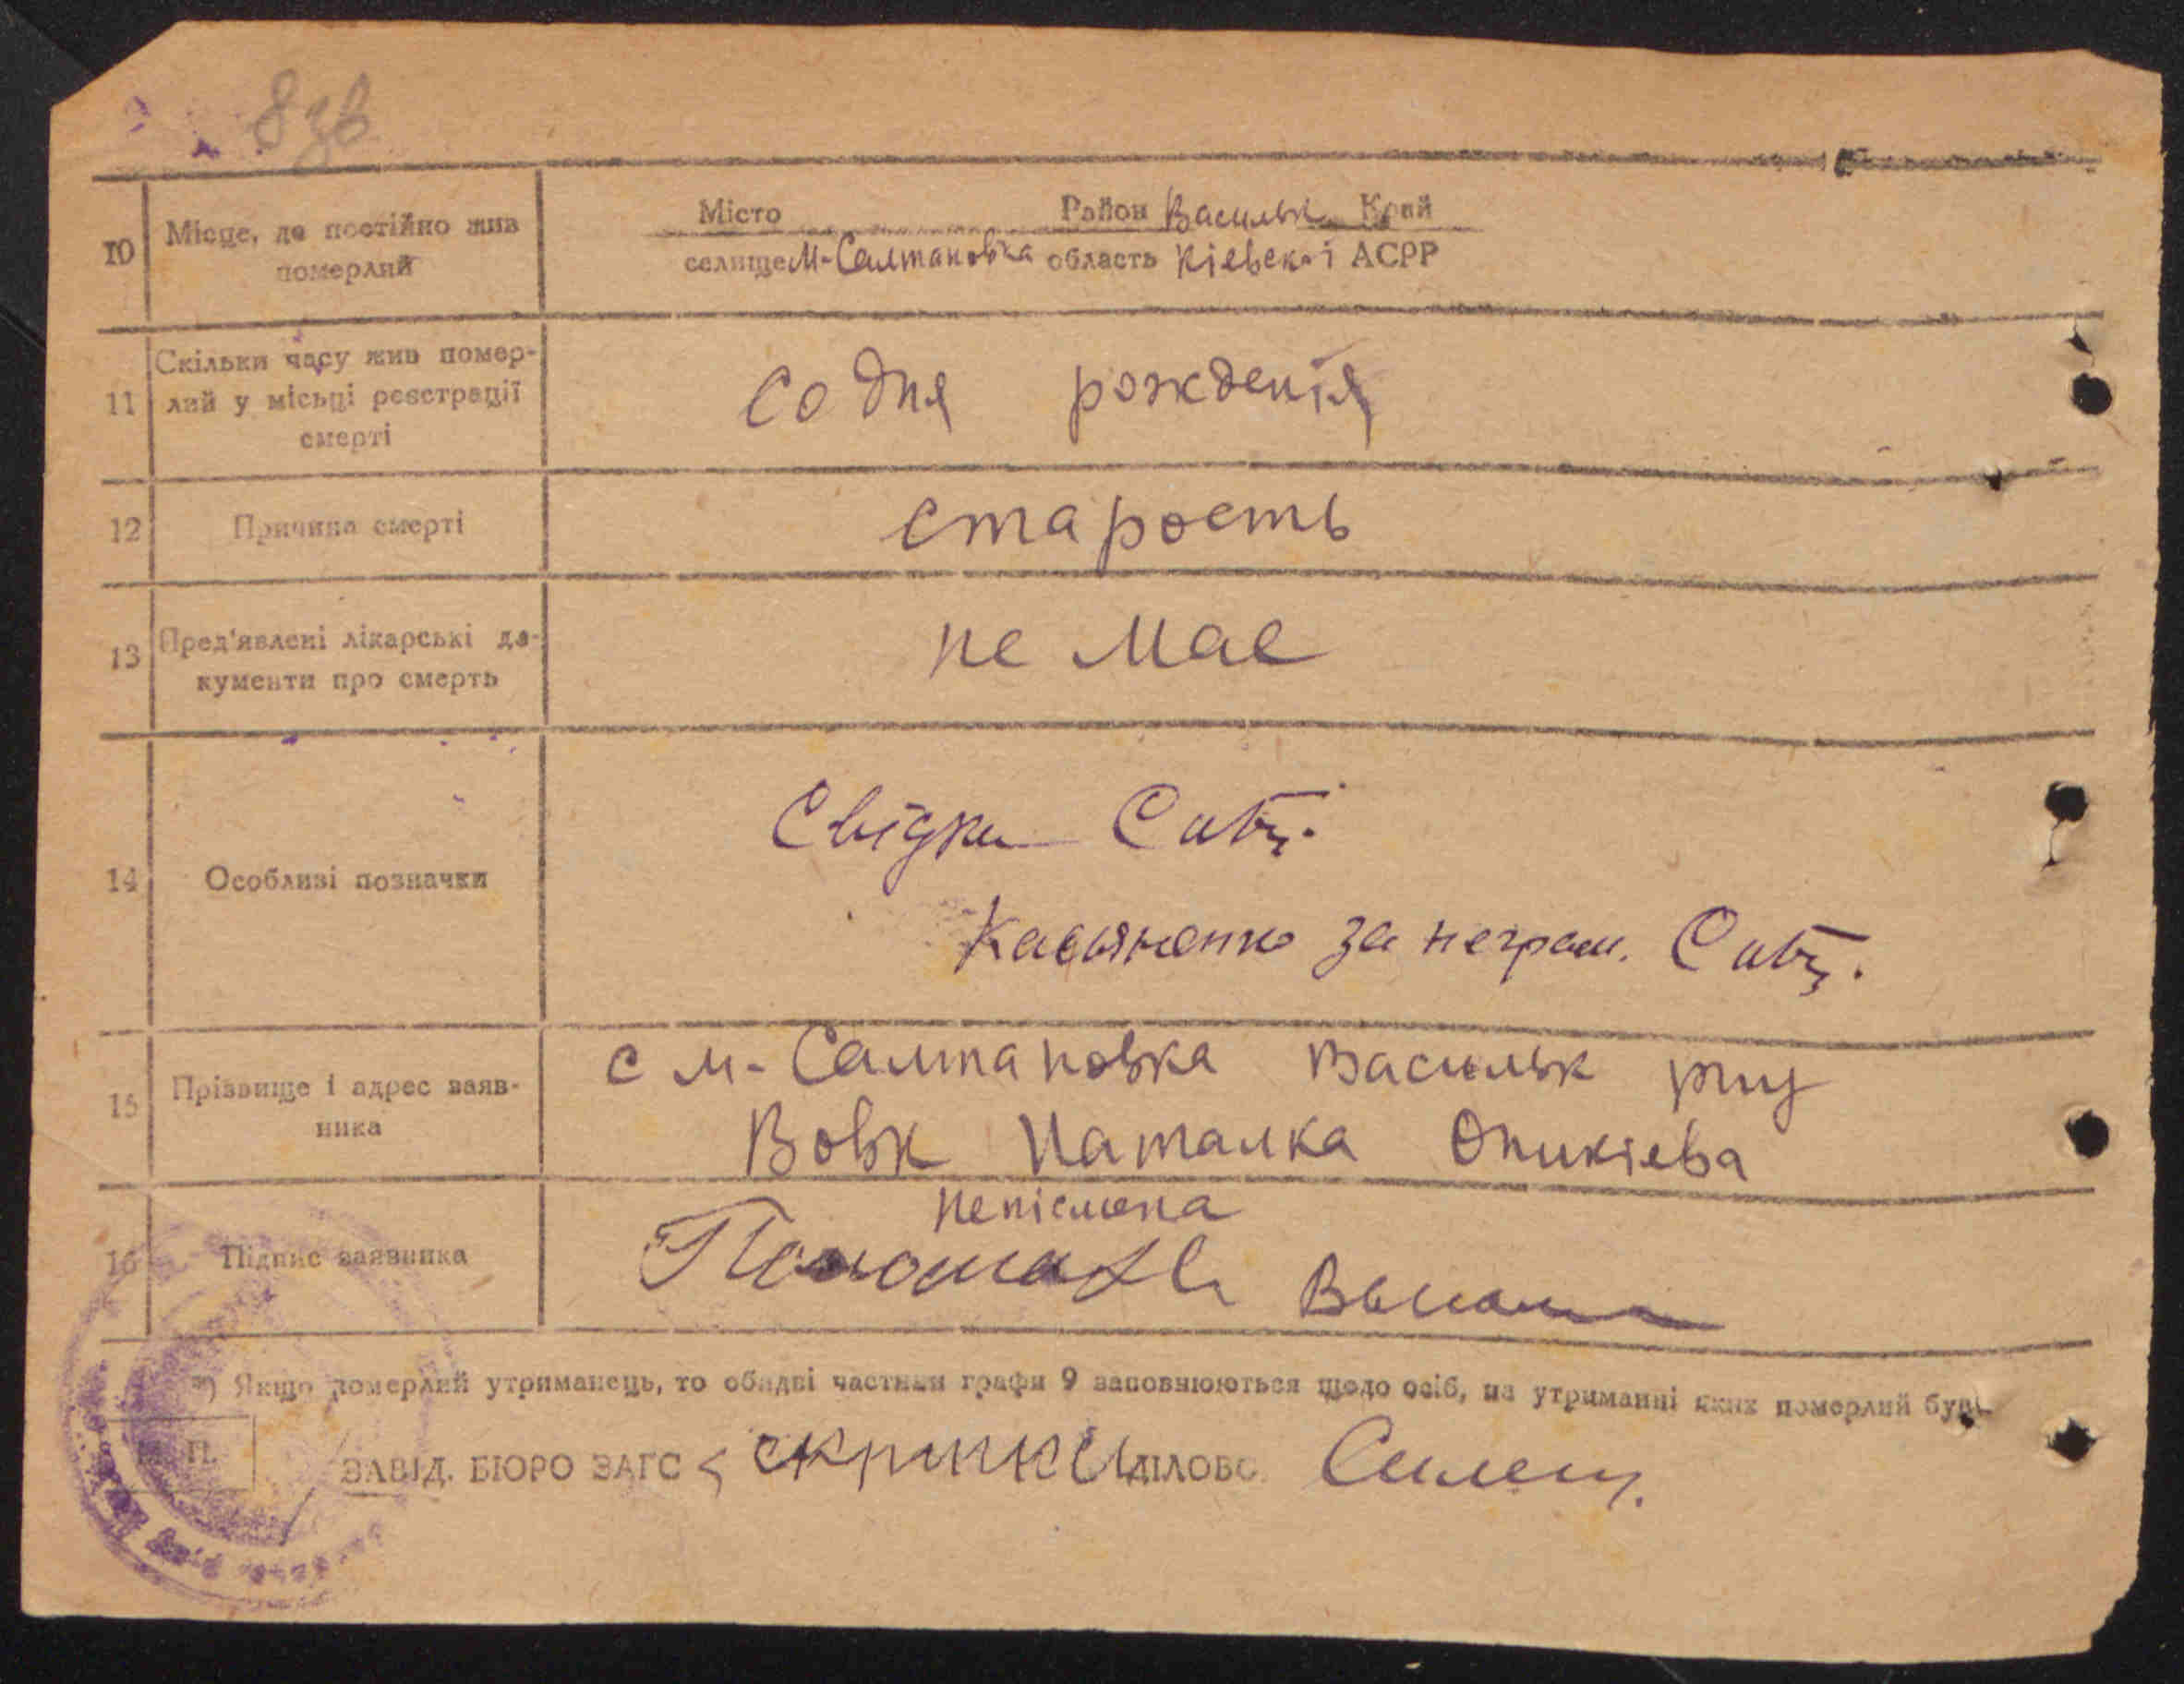 8зв
10 Місце, де постійно жив
померлий
Місто Район Васильк Край
селище М-Салтановка область Кіевскоі АСРР
11 Скільки часу жив помер-
лий у місьці реєстрації
смерті
со дня рожденія
12 Причина смерті
старость
13 Пред'явлені лікарські до-
кументи про смерть
не мае
14 Особливі позначки
Свідки
Касьяненко за неграм.
15 Прізвище і адрес заяв-
ника
с м-Салтановка Васильк
Вовк Наталка Оникіева
16 Підпис заявника
непісмена
*) Якщо померлий утриманець, то обидві частини графи 9 заповнюються щодо осіб, на утриманні яких померлий був.
М. П.
ЗАВІД. БЮРО ЗАГС ДІЛОВО